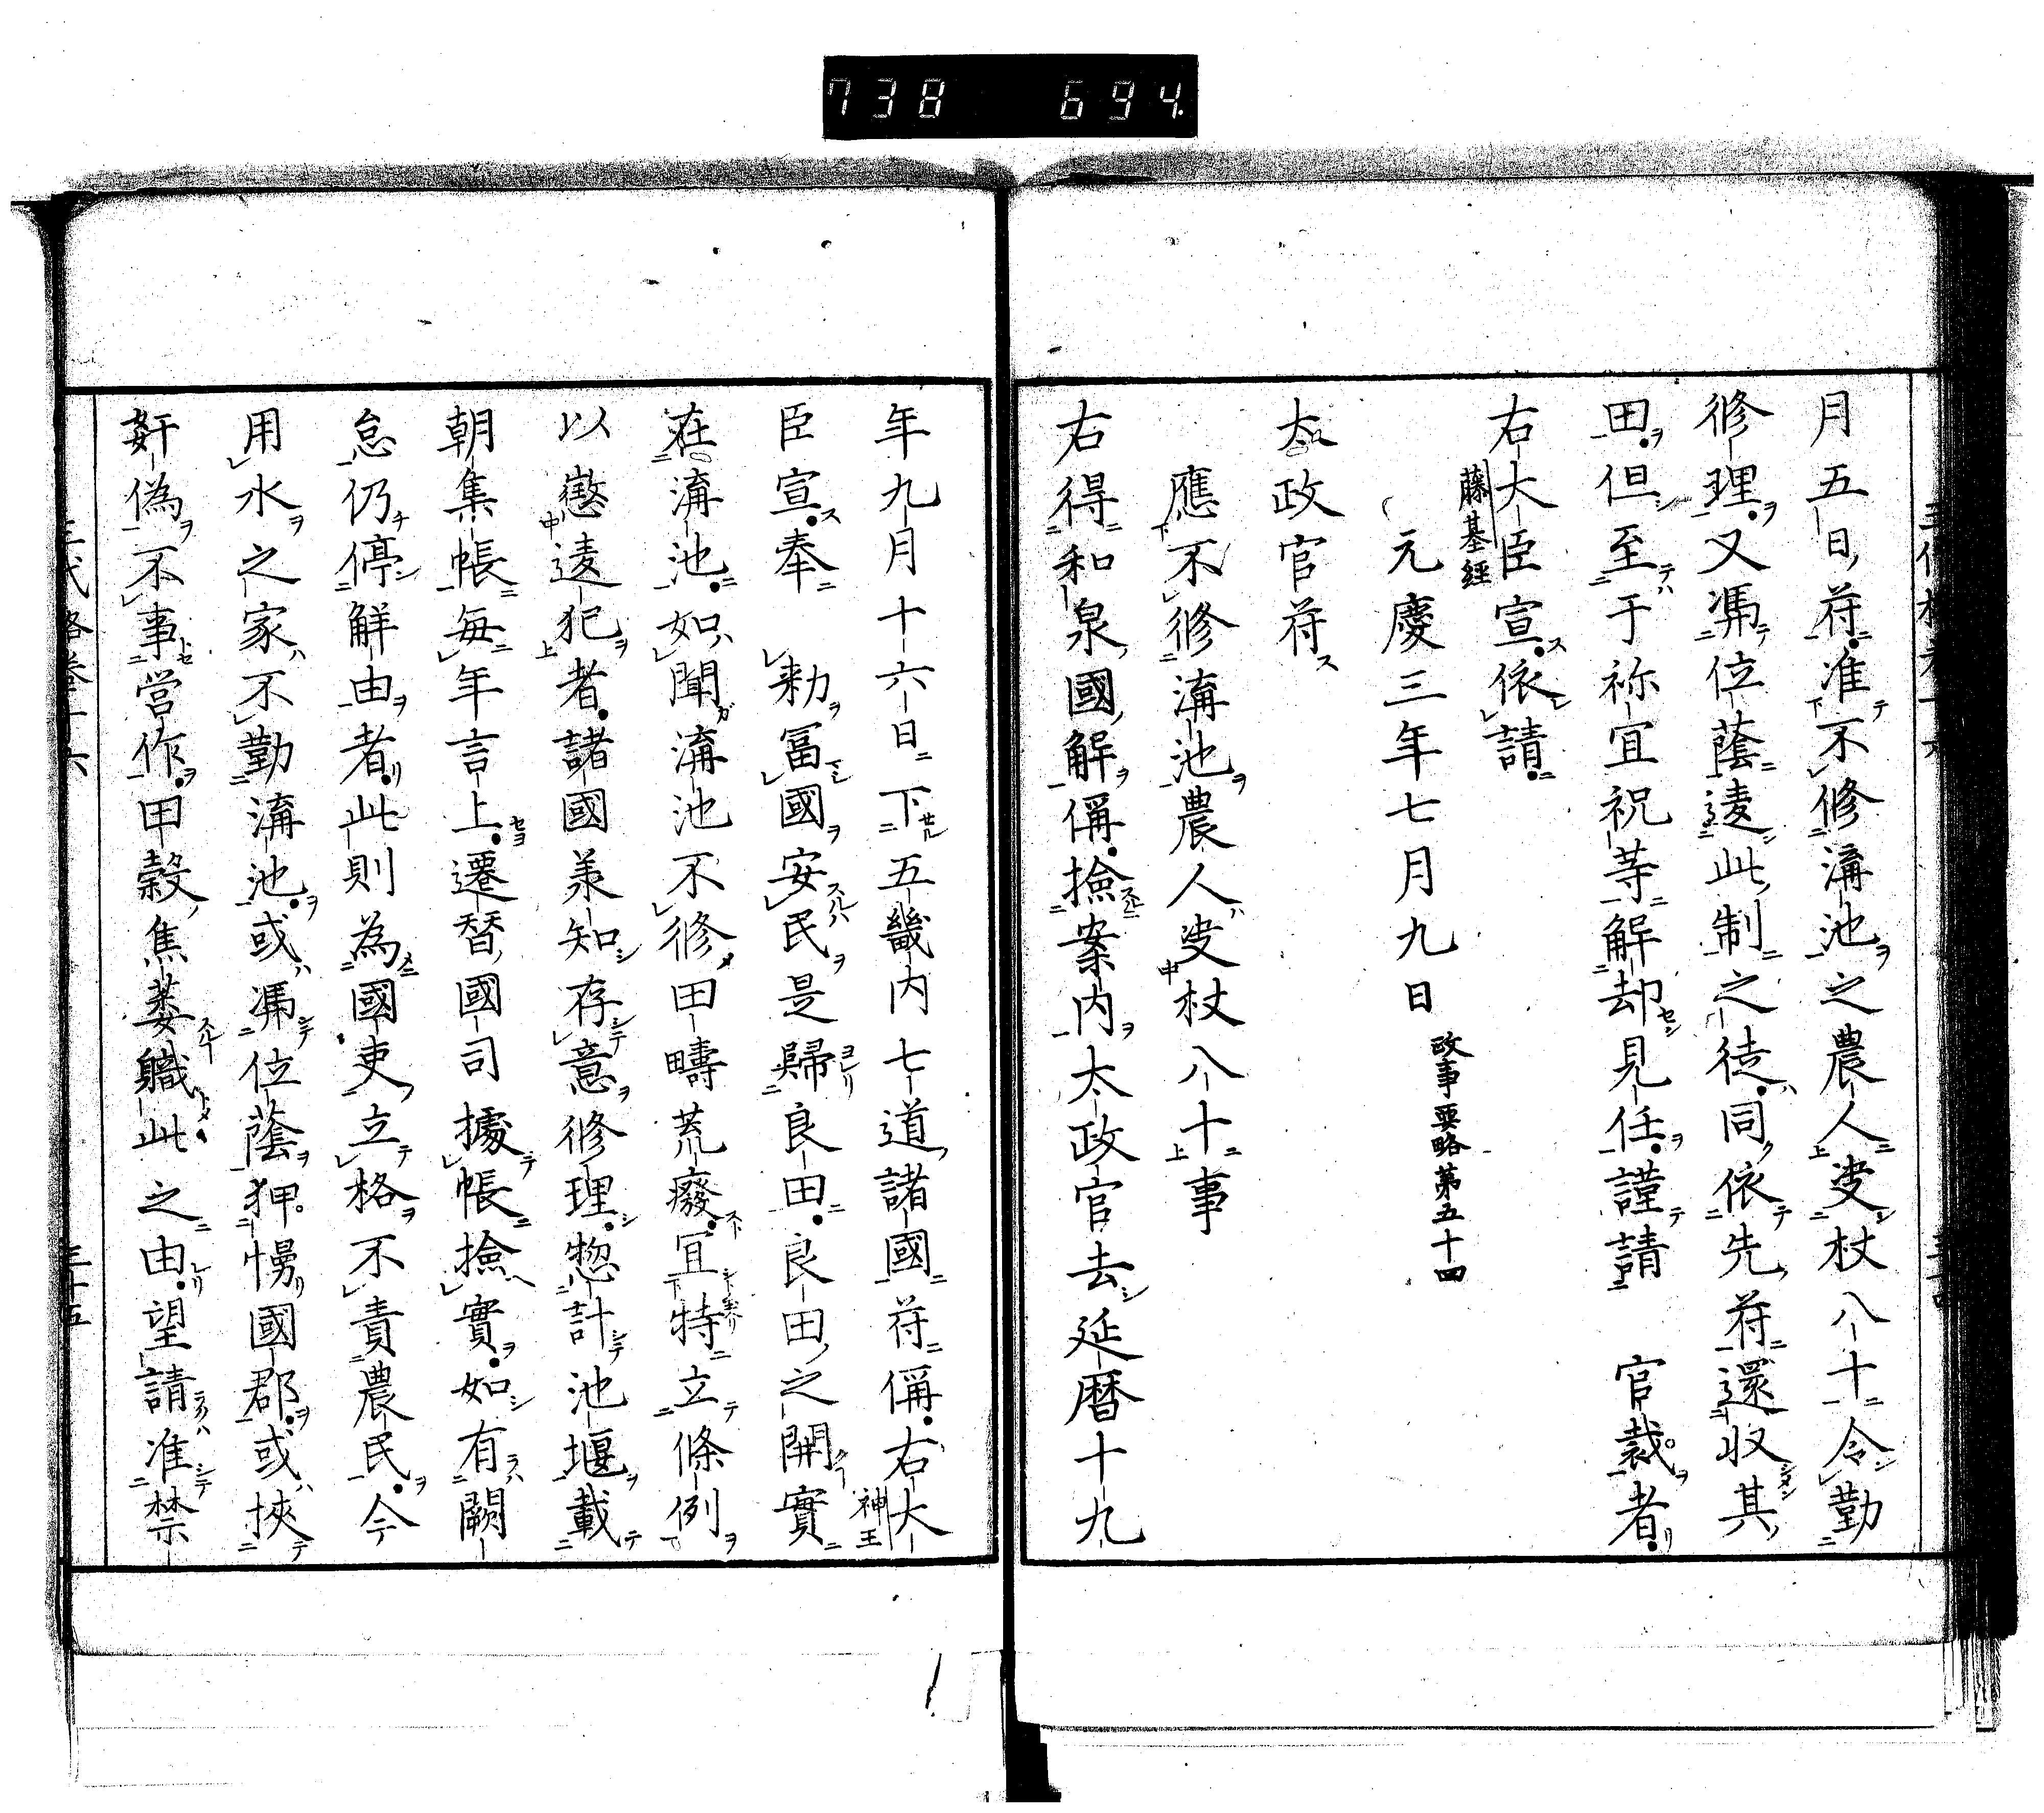 738 694
月五日符准不修溝池之農人決杖八十令勤
修理又馮位蔭違此制之徒同依先符還收其
田但至于祢宜祝等解却見任謹請　官裁者
右大臣宣依請
藤基經
元慶三年七月九日
政事要略第五十四
太政官符
應不修溝池農人決杖八十事
右得和泉國解偁撿案內太政官去延暦十九
年九月十六日下五畿内七道諸國符偁右大
神王
臣宣奉　勅冨國安民是歸良田良田之開實
在溝池如聞溝池不修田疇荒癈冝特立條例
以懲違犯者諸國羕知存意修理惣計池堰載
朝集帳毎年言上遷替國司據帳撿實如有闕
怠仍停解由者此則為國吏立格不責農民今
用水之家不勤溝池或馮位蔭狎慢國郡或挾
姧偽不事営作田穀焦萎職此之由望請准禁
三代格巻十六
三十五